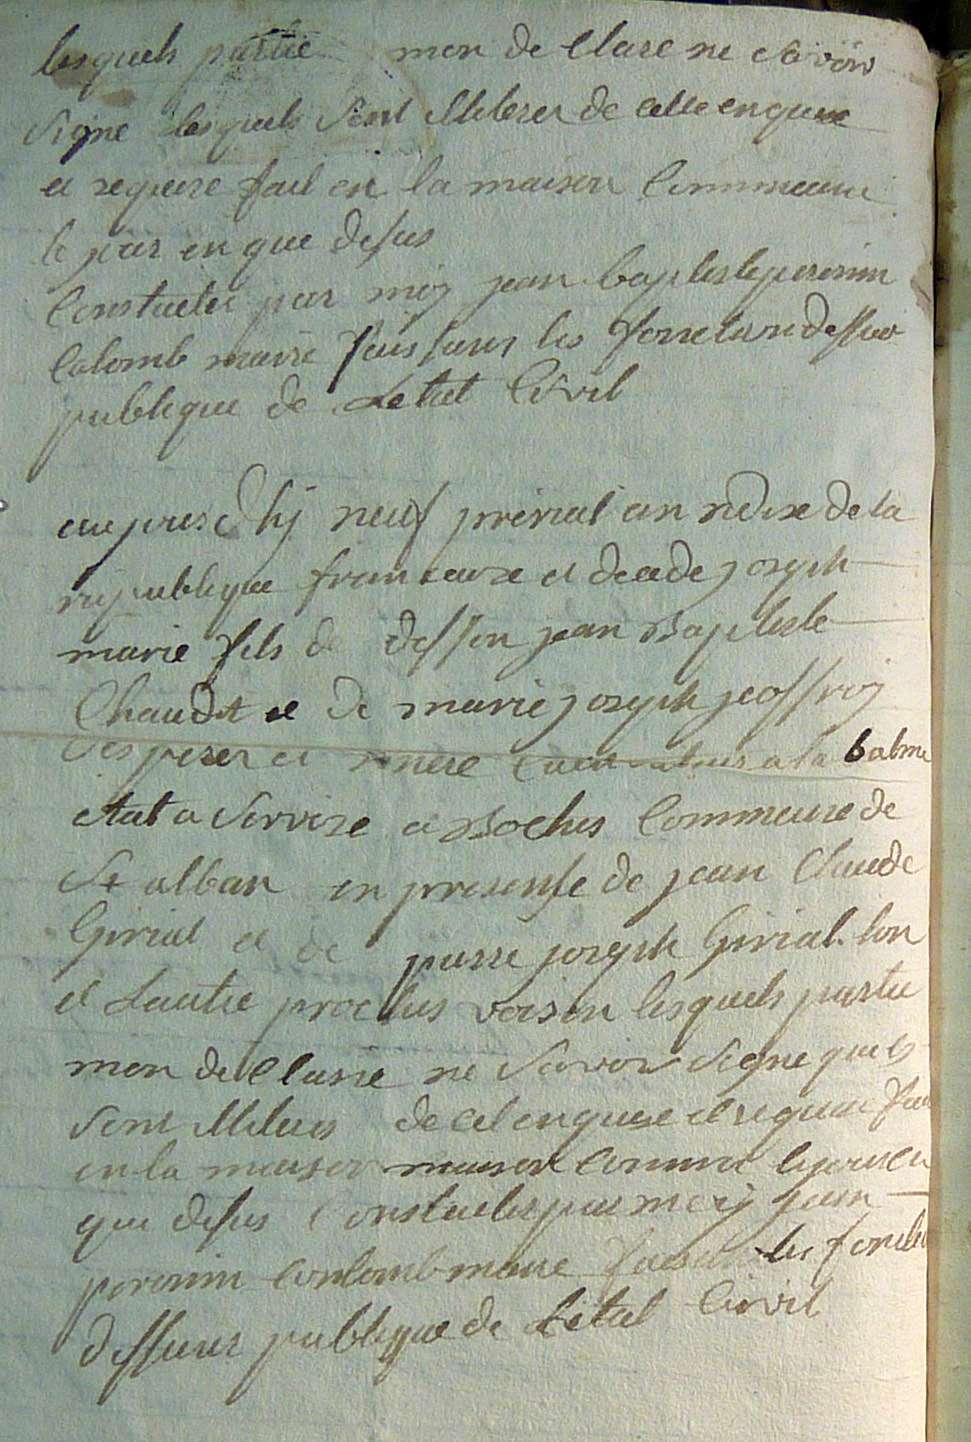 lesquels partie mon de Clare ne savoir
signe lesquels sont de cette enquise
et requise fait en la maison Commeune
le jour en que desus
Constater par moy jean baptiste peronin
Colomb maire faisant les fonction dessier
publique de Letat Civil
aujourdhj neuf prerial an de la
republique francaise et decede joseph
marie fils de deffon jean Baptiste
Chaudet et de marie joseph jeoffroy
ses perer et mere a la balme
etat a Servise a Boches Commeune de
St alban en presense de jean Claude
Girial et de pierre joseph Girial lon
et Lautre proches voisin lesquels partie
mon de Clarre ne Savoir Signe quels
sont de cet enquise et requise fait
en la maison maison comme le jour en
que desus Constater par moy jean
peronin Conlomb maire faisant les fonction
dessier publique de Letat Civil